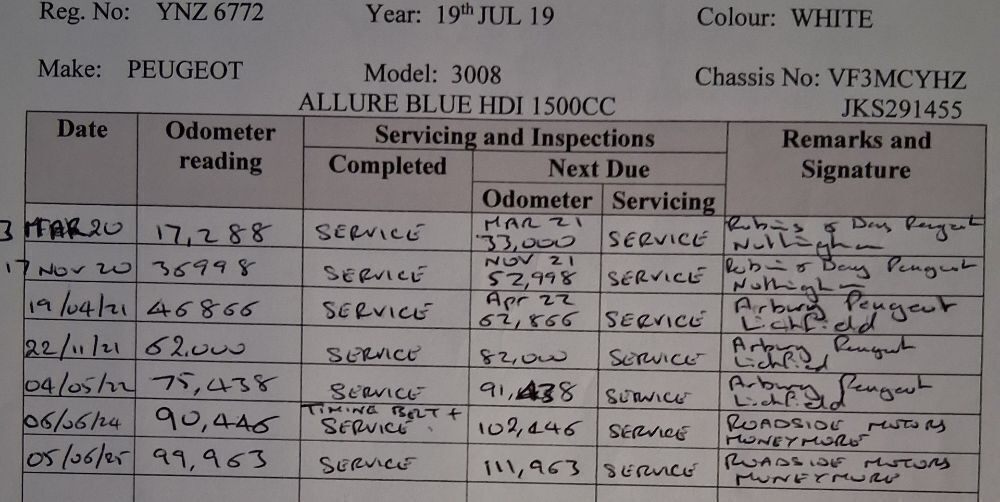 Reg. No: YNZ 6772 Year: 19th JUL 19 Colour: WHITE
Make: PEUGEOT Model: 3008 Chassis No: VF3MCYHZ
ALLURE BLUE HDI 1500CC JKS291455
Date Odometer reading Servicing and Inspections Remarks and Signature
Completed Next Due
Odometer Servicing
3 MAR 20 17,288 SERVICE MAR 21 33,000 SERVICE Robins & Day Peugeot Nottingham
17 NOV 20 36998 SERVICE NOV 21 52,998 SERVICE Robins & Day Peugeot Nottingham
19/04/21 46866 SERVICE Apr 22 62,866 SERVICE Arbury Peugeot Lichfield
22/11/21 62,000 SERVICE 82,000 SERVICE Arbury Peugeot Lichfield
04/05/22 75,438 SERVICE 91,438 SERVICE Arbury Peugeot Lichfield
06/06/24 90,446 TIMING BELT + SERVICE 102,446 SERVICE ROADSIDE MOTORS MONEYMORE
05/06/25 99,963 SERVICE 111,963 SERVICE ROADSIDE MOTORS MONEYMORE